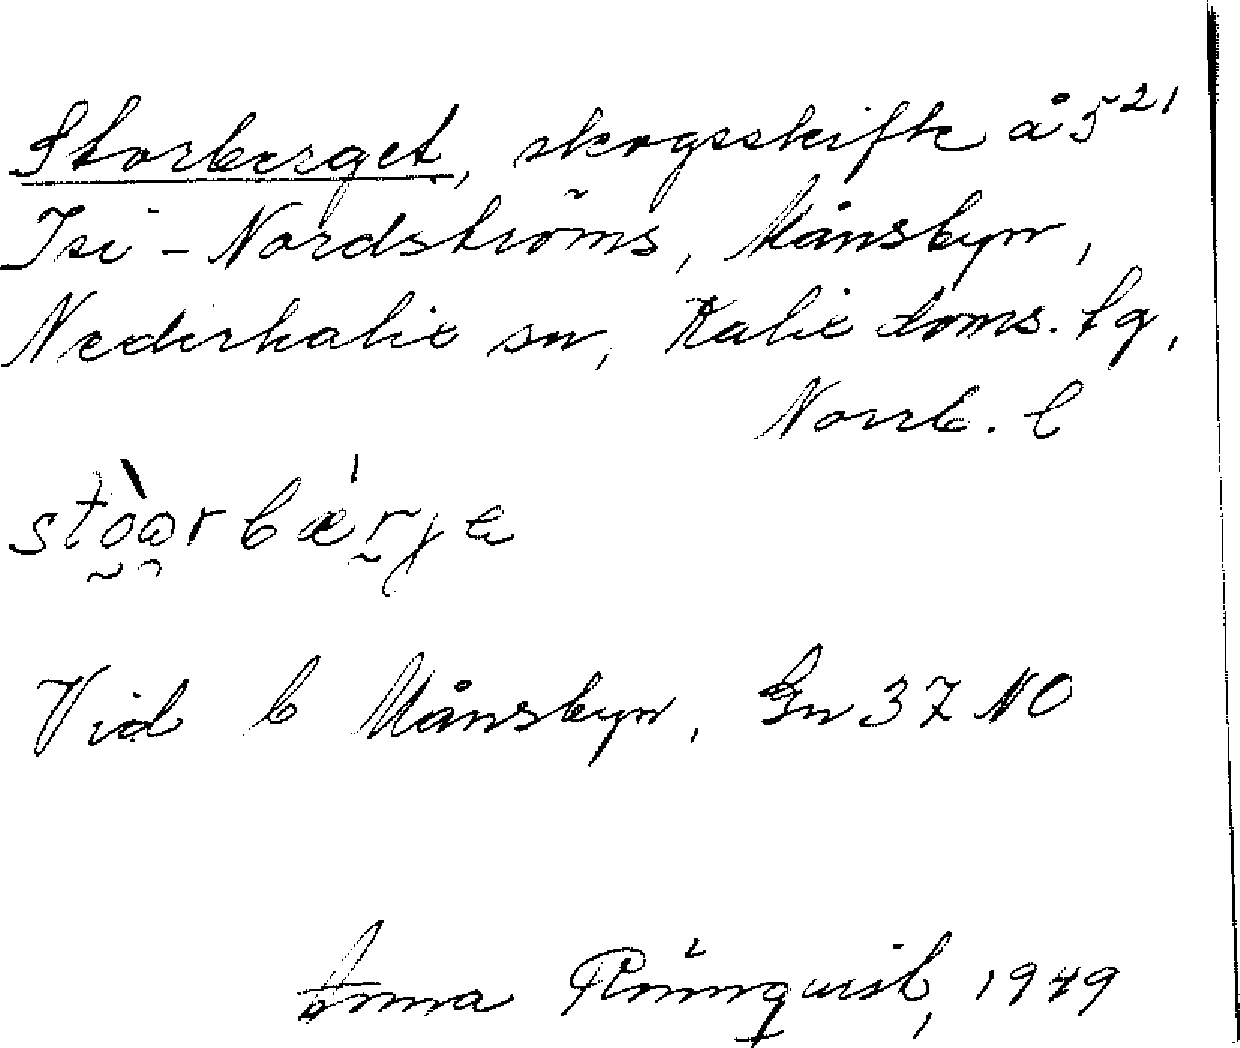 Storberget, skogsskifte å 5²¹
Isi-Nordströms, Månsbyn,
Nederkalix sn, Kalix doms. lg,
Norrb. l
stòɷrbæ'rjɛ
Vid b Månsbyn, Gn 37 NO
Anna Rönnquist, 1949